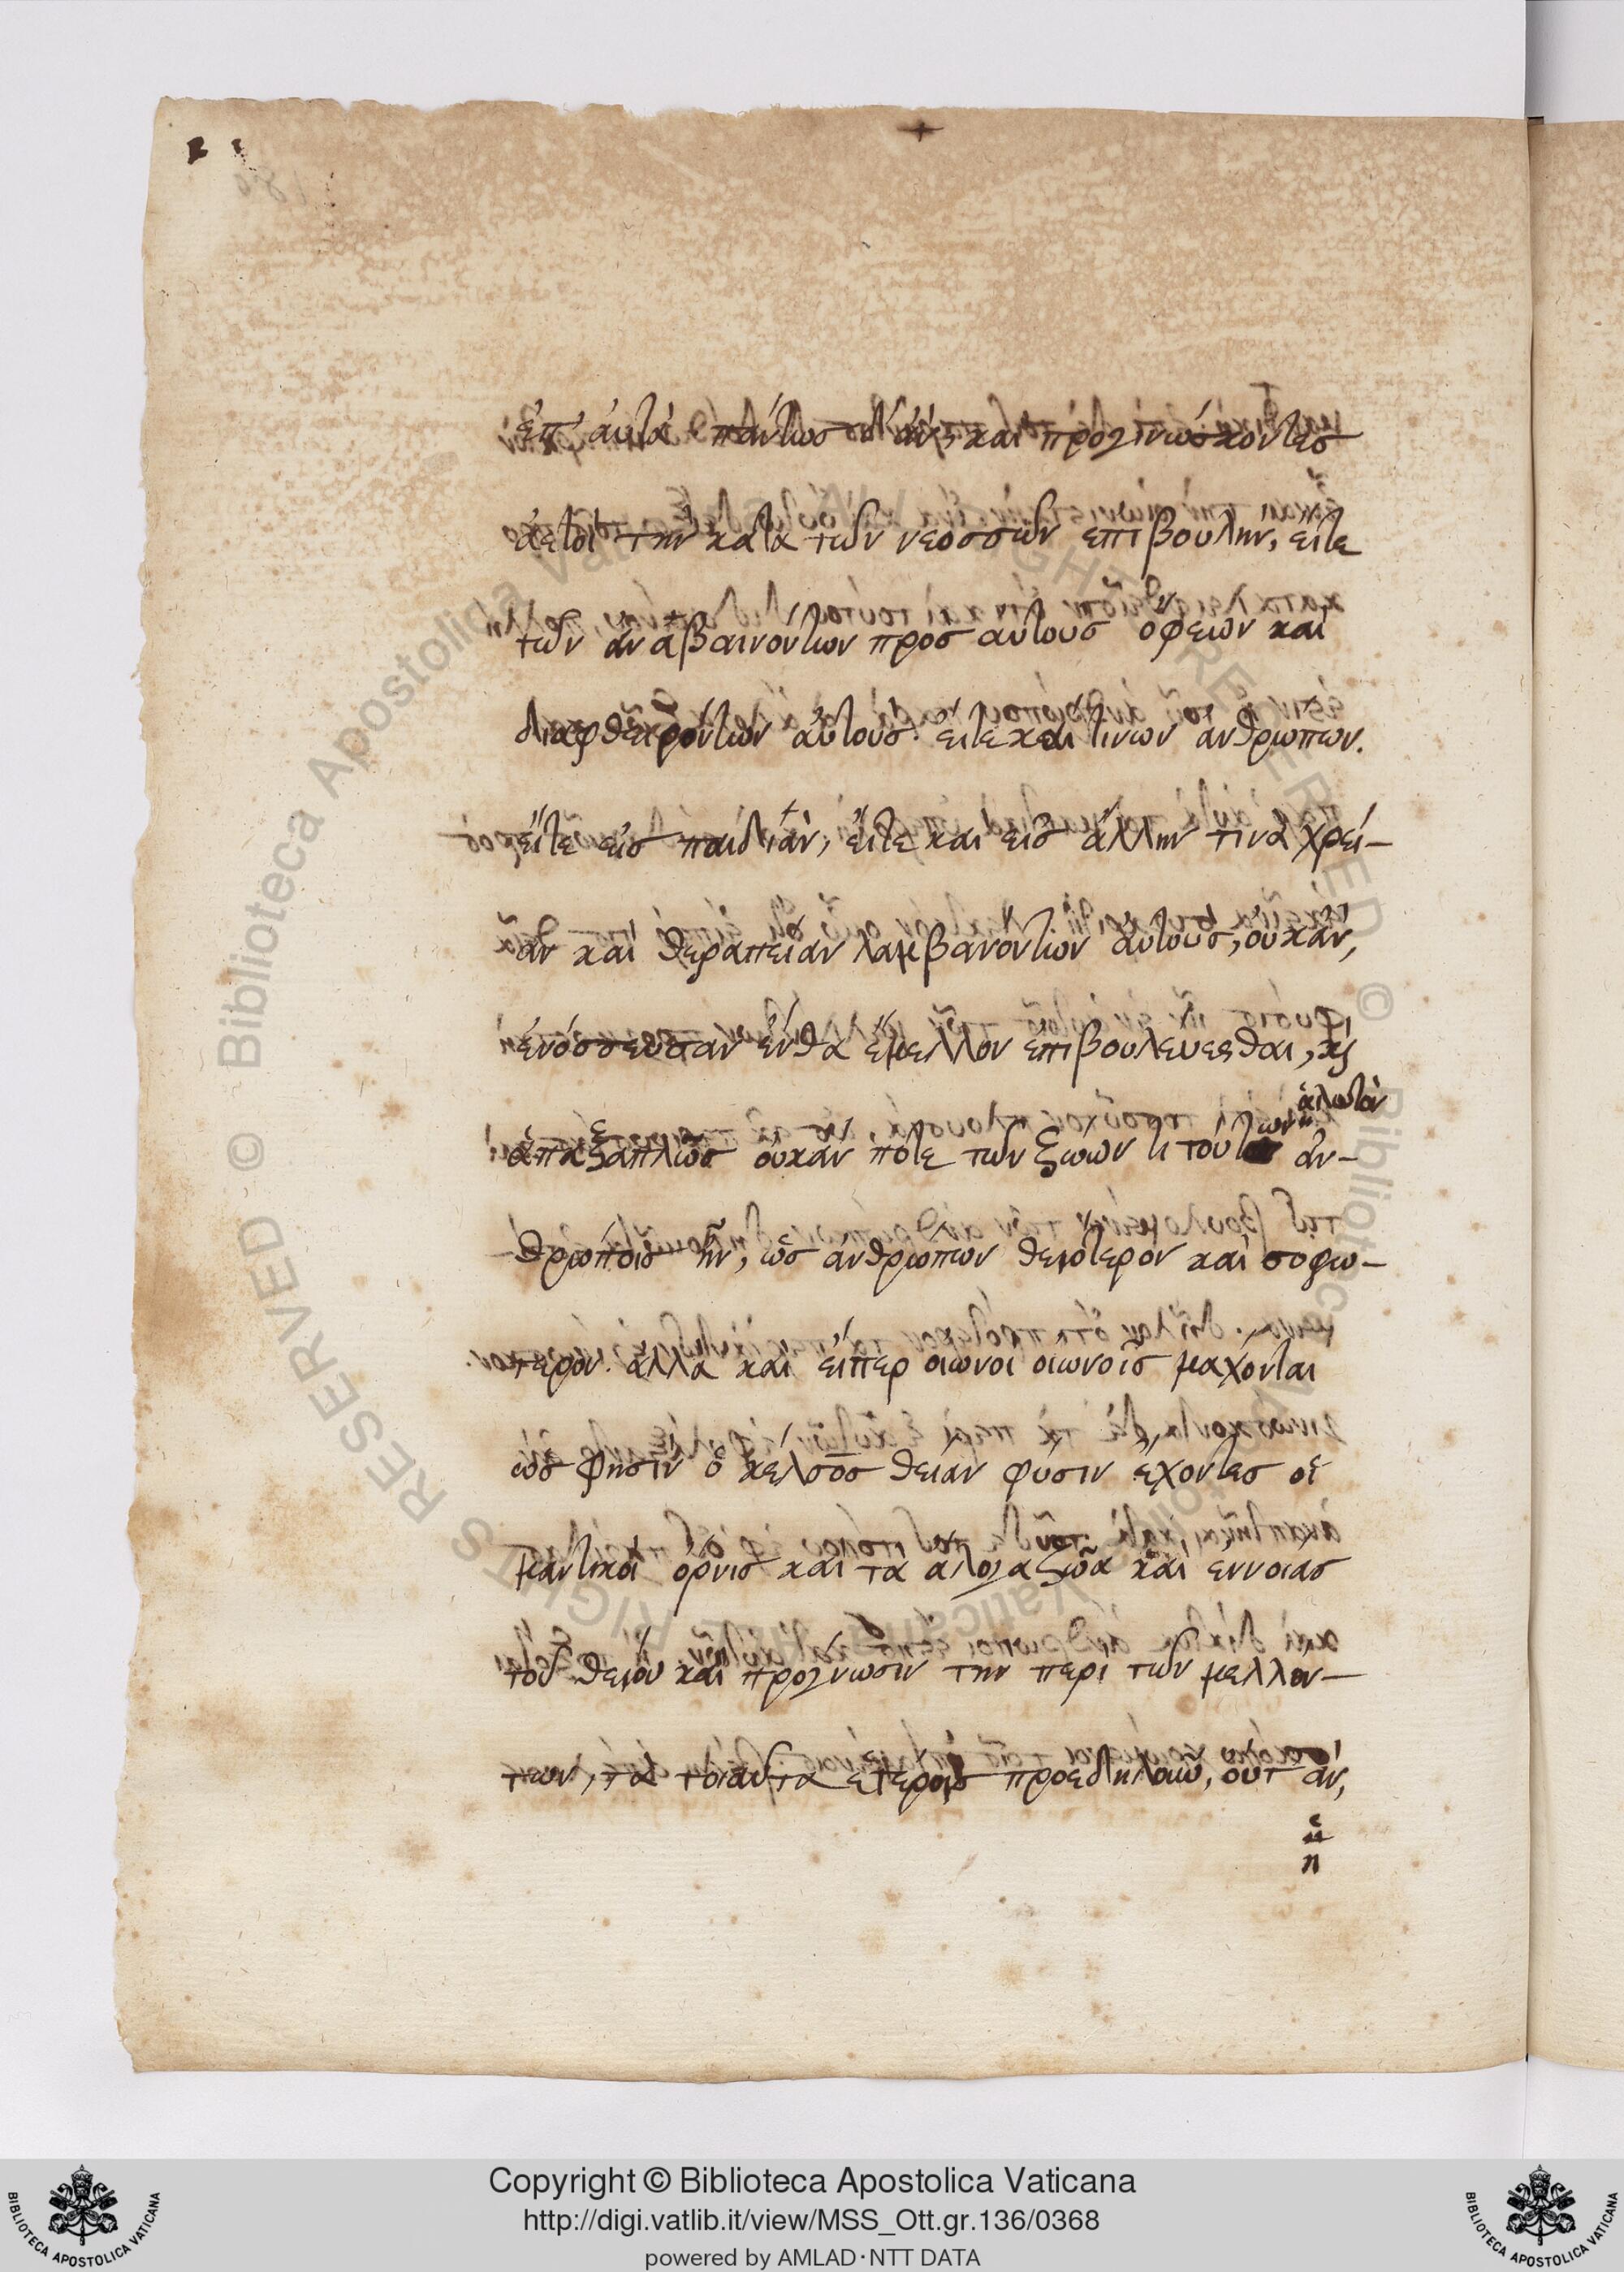 ἐπ' αὐτὰ πάντως δ' ἂν καὶ προγινώσκοντες
ἀετοὶ τὴν κατὰ τῶν νεοσσῶν ἐπιβουλὴν, εἴτε
τῶν ἀναβαινόντων πρὸς αὐτοὺς ὄφεων καὶ
διαφθειρόντων αὐτοὺς. εἴτε καὶ τινῶν ἀνθρώπων.
εἴτε εἰς παιδιὰν, εἴτε καὶ εἰς ἄλλην τινὰ χρεί-
αν καὶ θεραπείαν λαμβανόντων αὐτοὺς, οὐκ ἂν,
ἐνόσσευσαν ἔνθα ἔμελλον ἐπιβουλεύεσθαι, καὶ
ἁλωτὸν
ἁπαξαπλῶς οὐκ ἄν ποτε τῶν ζώων τι τούτων ἀν-
θρώποις ἦν, ὡς ἀνθρώπων θειότερον καὶ σοφώ-
τερον. ἀλλὰ καὶ εἴπερ οἰωνοὶ οἰωνοῖς μάχονται
ὥς φησιν ὁ κέλσος θείαν φύσιν ἔχοντες οἱ
μαντικοὶ ὄρνις καὶ τὰ ἄλογα ζῶα καὶ ἐννοίας
τοῦ θείου καὶ πρόγνωσιν τὴν περὶ τῶν μελλόν-
των, τὰ τοιαῦτα ἑτέροις προεδήλουν, οὔτ' ἂν,
ἡ
Copyright © Biblioteca Apostolica Vaticana
http://digi.vatlib.it/view/MSS_Ott.gr.136/0368
powered by AMLAD·NTT DATA
BIBLIOTECA APOSTOLICA VATICANA
BIBLIOTECA APOSTOLICA VATICANA